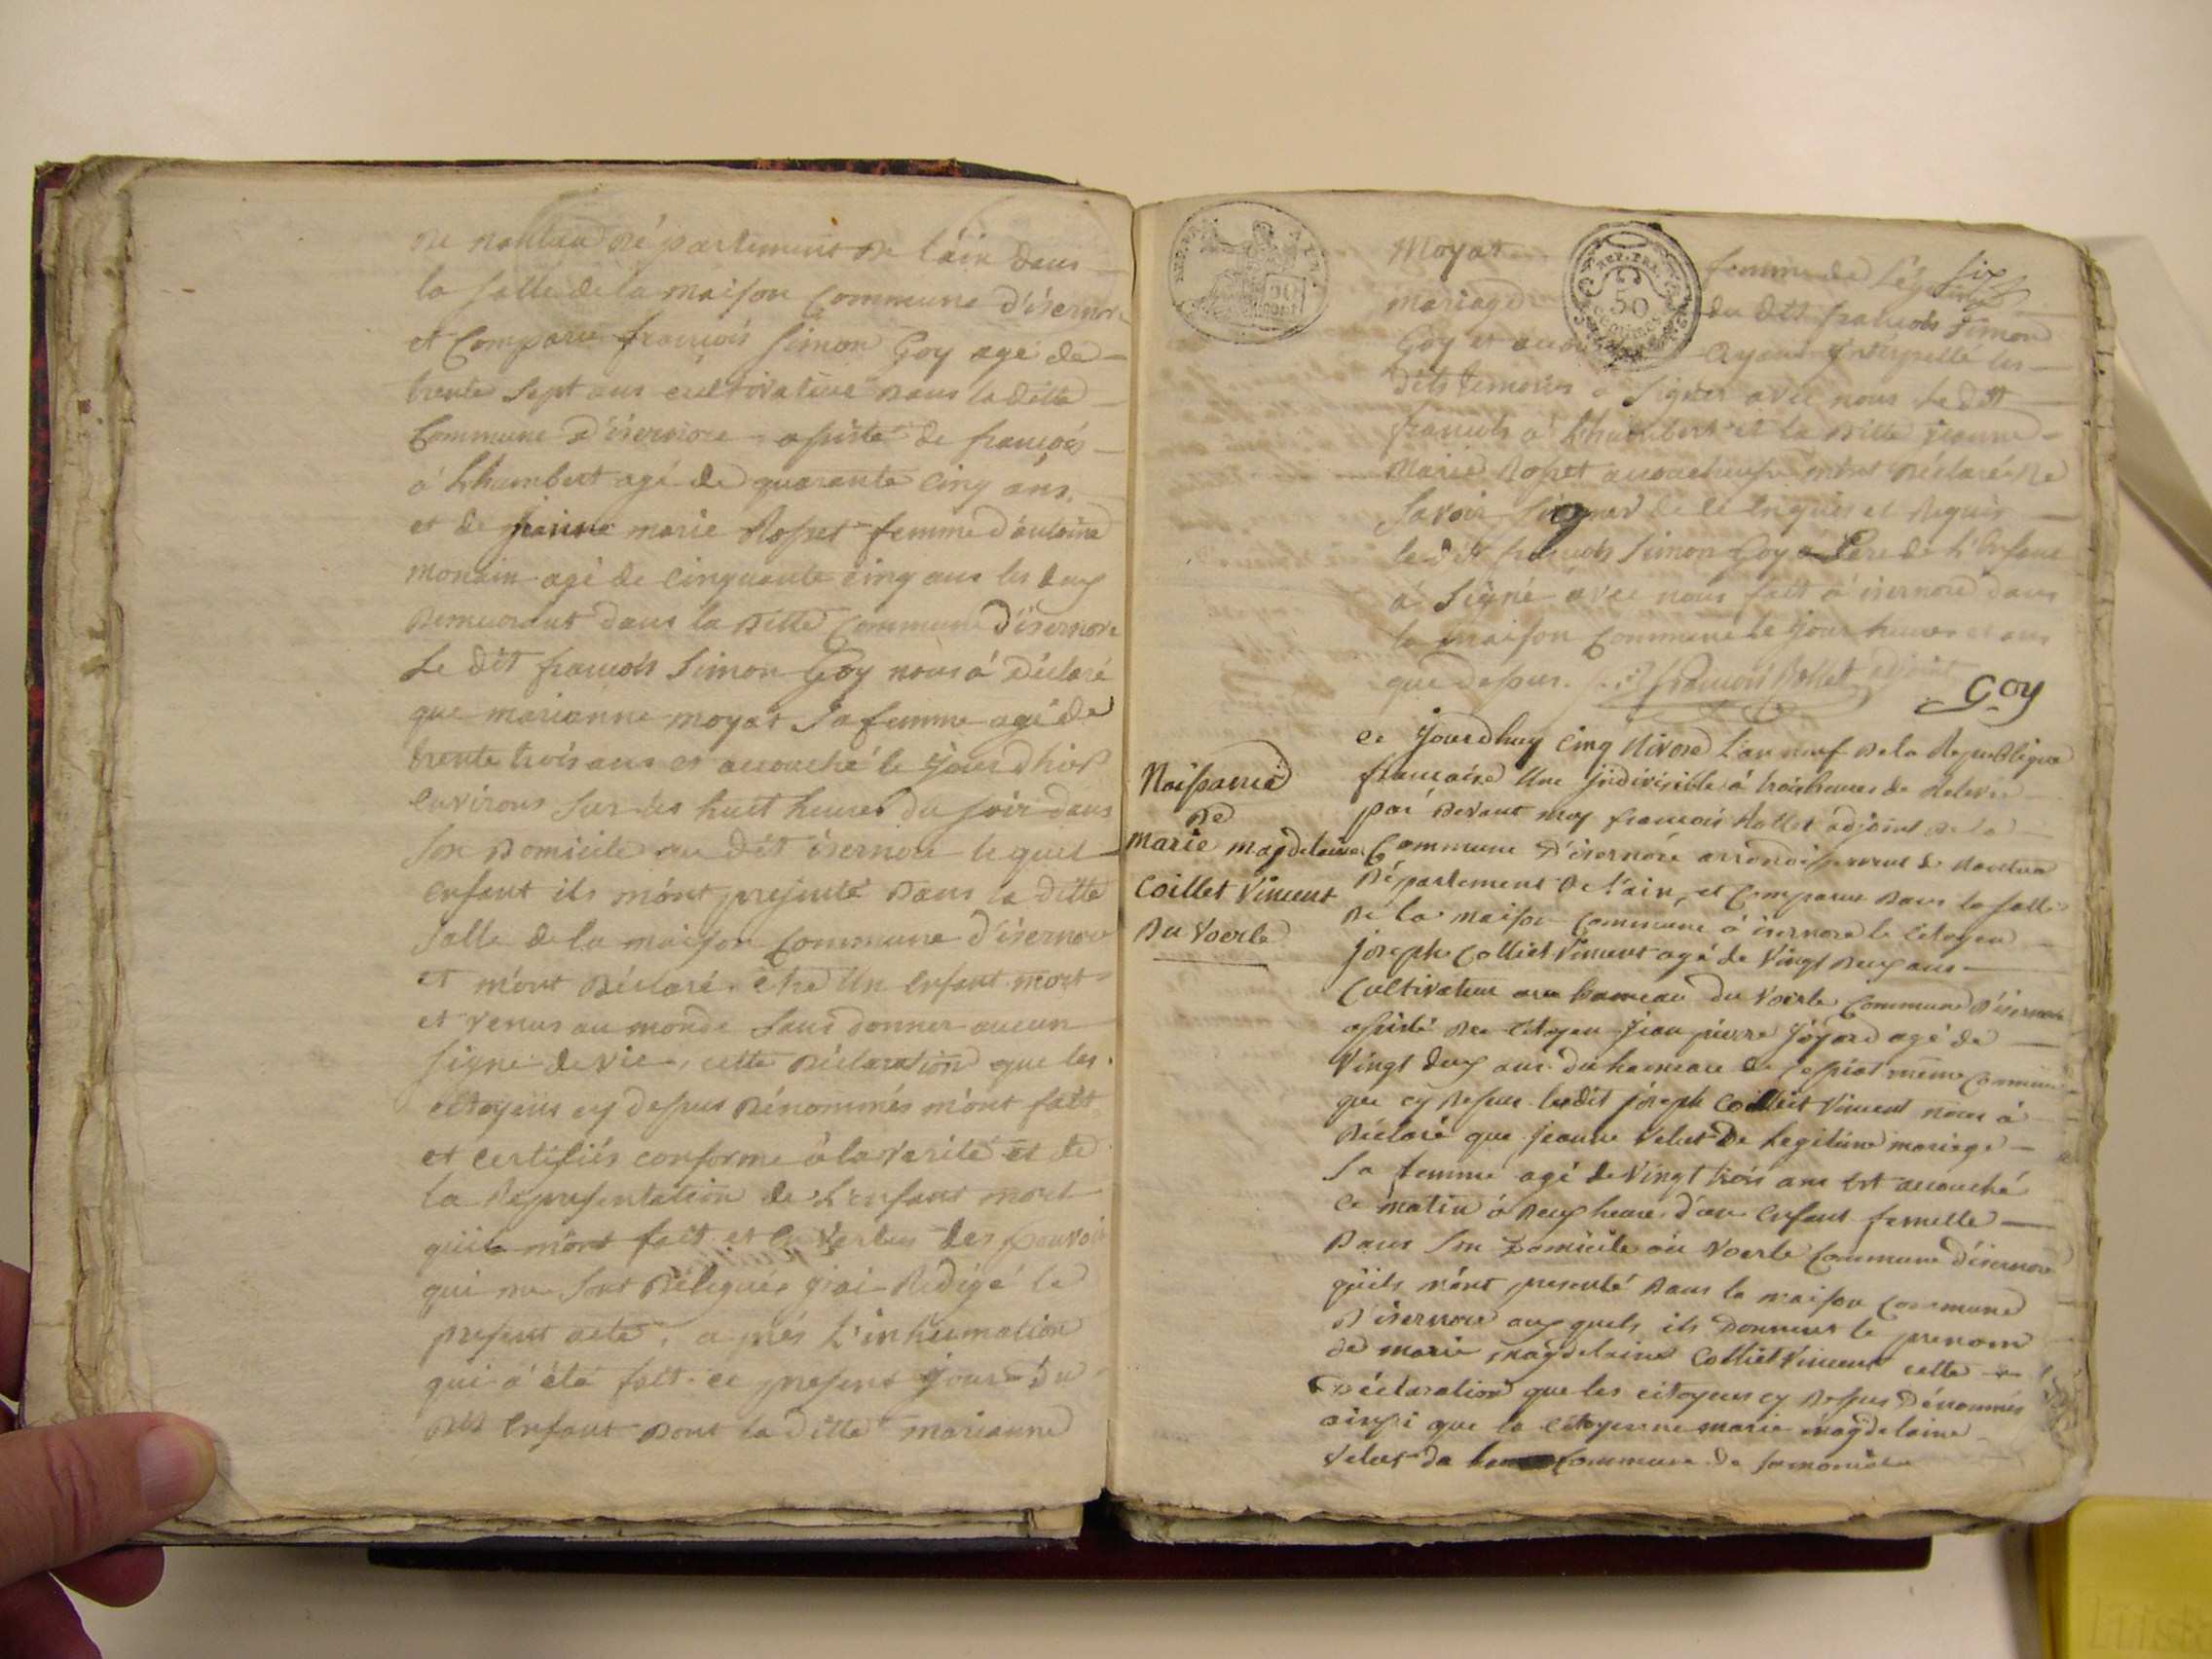 De nantua département De l'ain dans
la salle de la maison Commune d'isernore
et Comparu françois simon Goy agé de
trente sept ans cultivateur Dans la ditte
Commune d'isernore assisté de françois
à Lhumbert agé de quarante cinq ans,
et de jeanne marie Rosset femme d'antoine
Monain agé de cinquante cinq ans les deux
Demeurant dans la Ditte Commune d'isernore
Le dit françois simon Goy nous à Déclaré
que marianne moyat sa femme agé de
trente trois ans es accouché le jour d'hier
Environs sur les huit heures du soir dans
son Domicile au dit isernore lequel
enfant ils m'ont presenté Dans la ditte
salle de la maison Commune d'isernore
et m'ont Déclaré être Un Enfant mort
et venus au monde sans donner aucun
signe de vie, cette Déclaration que les
citoyens cy dessus Dénommés m'ont fait
et certifiés conforme à la verité et de
la Representation de L'enfant mort
qu'ils m'ont fait et En Vertus des pouvoir
qui me sont Délegués j'ai Redigé le
present acte, après L'inhumation
qui à été fait ce present jour du
Dit Enfant dont la ditte marianne
six
Moyat femme de Légitime
mariage du dit françois simon
Goy es accouché Ayant interpellé les
dits temoins a signer avec nous le dit
françois à Lhumbert et la ditte jeanne
Marie Rosset accoucheuse m'ont Déclaré Ne
savoir signer de ce Enquis et Requis
le dit françois simon Goy Père de L'Enfant
à signé avec nous fait à isernore dans
la maison Commune le jour heures et ans
que dessus. françois Rollet adjoint
Goy
Naissance
De
marie magdelaine
Coillet Vincent
Du Voerle
Ce jourdhuy cinq Nivose L'an neuf De la Republique
française Une indivisible à trois heures de Relevée
par devant moy françois Rollet adjoint De la
Commune d'isernore arrondissement de Nantua
Département De l'ain, et Comparu Dans la salle
De la maison Commune à isernore le Citoyen
joseph Colliet Vincent agé de Vingt deux ans
Cultivateur au hameau Du Voerle Commune d'isernore
assisté Des Citoyen jean pierre joyard agé de
Vingt deux ans du hameau de même Commune
que cy dessus ledit joseph Colliet Vincent nous à
Déclaré que jeanne Velut De Legitime mariage
sa femme agé de Vingt trois ans est accouché
Ce matin à Deux heure d'un Enfant femelle
Dans son Domicile au Voerle Commune d'isernore
qu'ils m'ont presenté Dans la maison Commune
D'isernore aux quels ils Donnent le prenom
de marie magdelaine Colliet Vincent cette
Déclaration que les citoyens cy Dessus Dénommés
ainsi que la Citoyenne marie magdelaine
Velut da Commune de